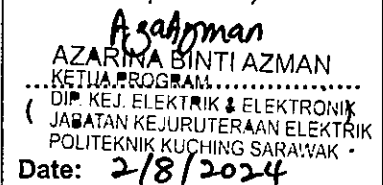 AzaAzman
AZARINA BINTI AZMAN
KETUA PROGRAM
( DIP. KEJ. ELEKTRIK & ELEKTRONIK )
JABATAN KEJURUTERAAN ELEKTRIK
POLITEKNIK KUCHING SARAWAK
Date: 2/8/2024